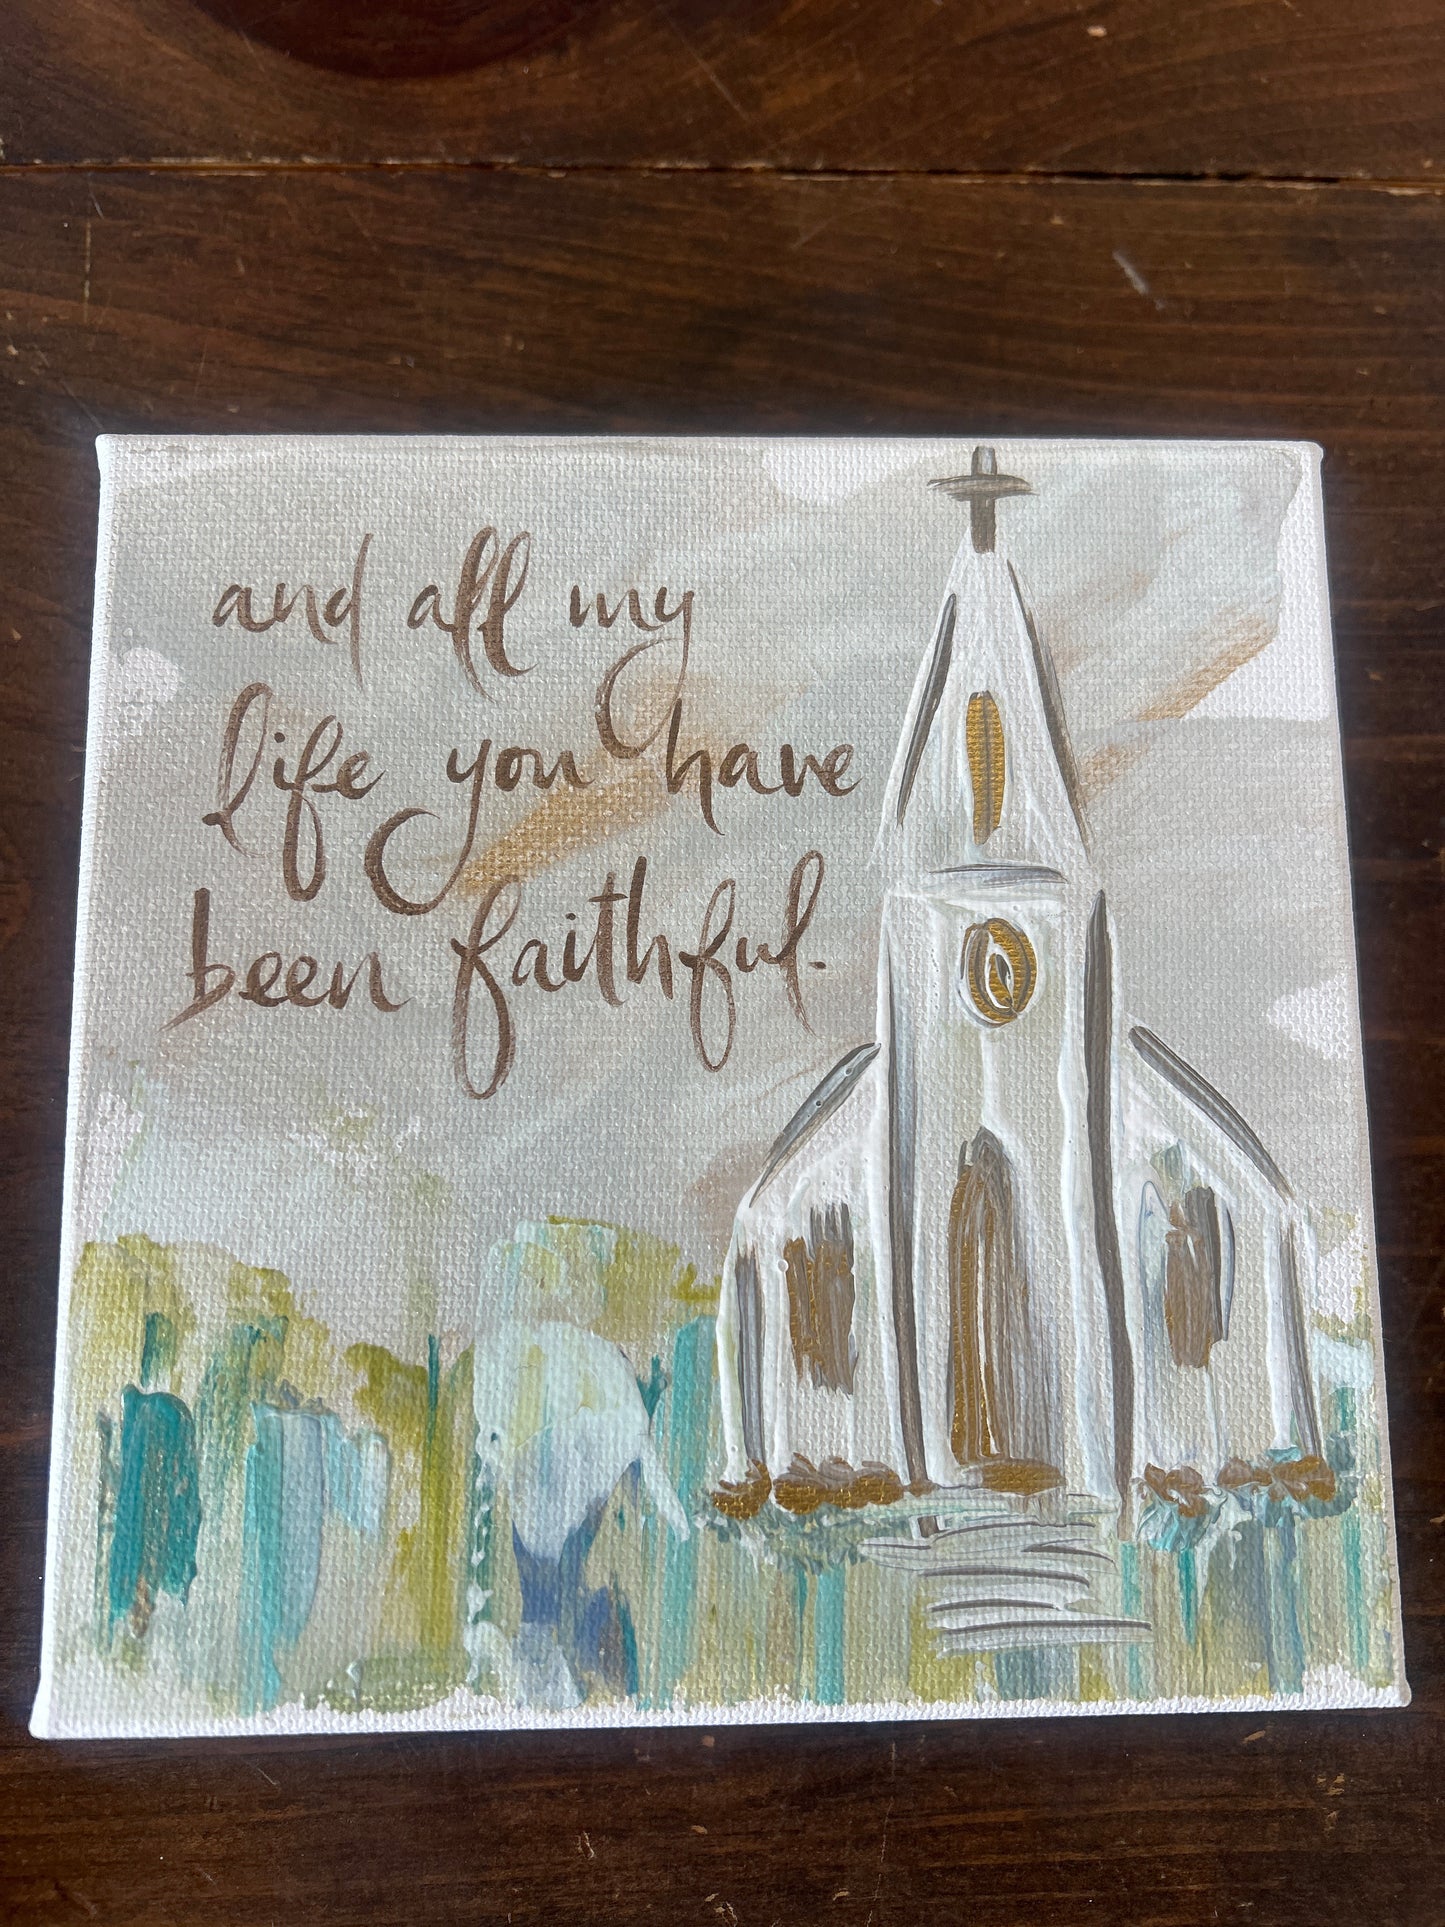 and all my
life you have
been faithful.